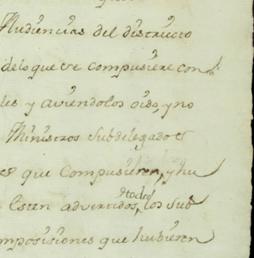 Audiencias del districto
delo que se compusiere con
les y aviendolos oido, y no
Ministros Subdelegados
es que Compusieren, y hu
Esten advertidos, y todos los Sub
omposisiones que hubieren